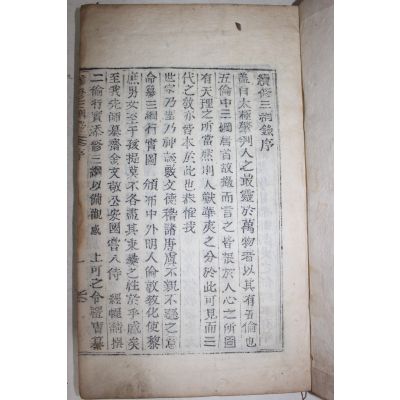 續修三綱錄序
盖自太極肇判人之最靈於萬物者以其有五倫也
五倫中三綱居首故蔽而言之皆張於人心之所固
有天理之所當然則人獸華夷之分於此可見而三
代之敎亦皆本於此也恭惟我
世宗乃聖乃神誕敷文德稽諸唐虞不親不遜之意
命纂三綱行實圖 頒布中外明人倫敦敎化使黎
庶男女至于孩提莫不各盡其秉彛之性於乎盛矣
至我先師慕齋金文敬公安國嘗入侍 經幄請撰
二倫行實添修三綱以備觀感 上可之令禮曹纂